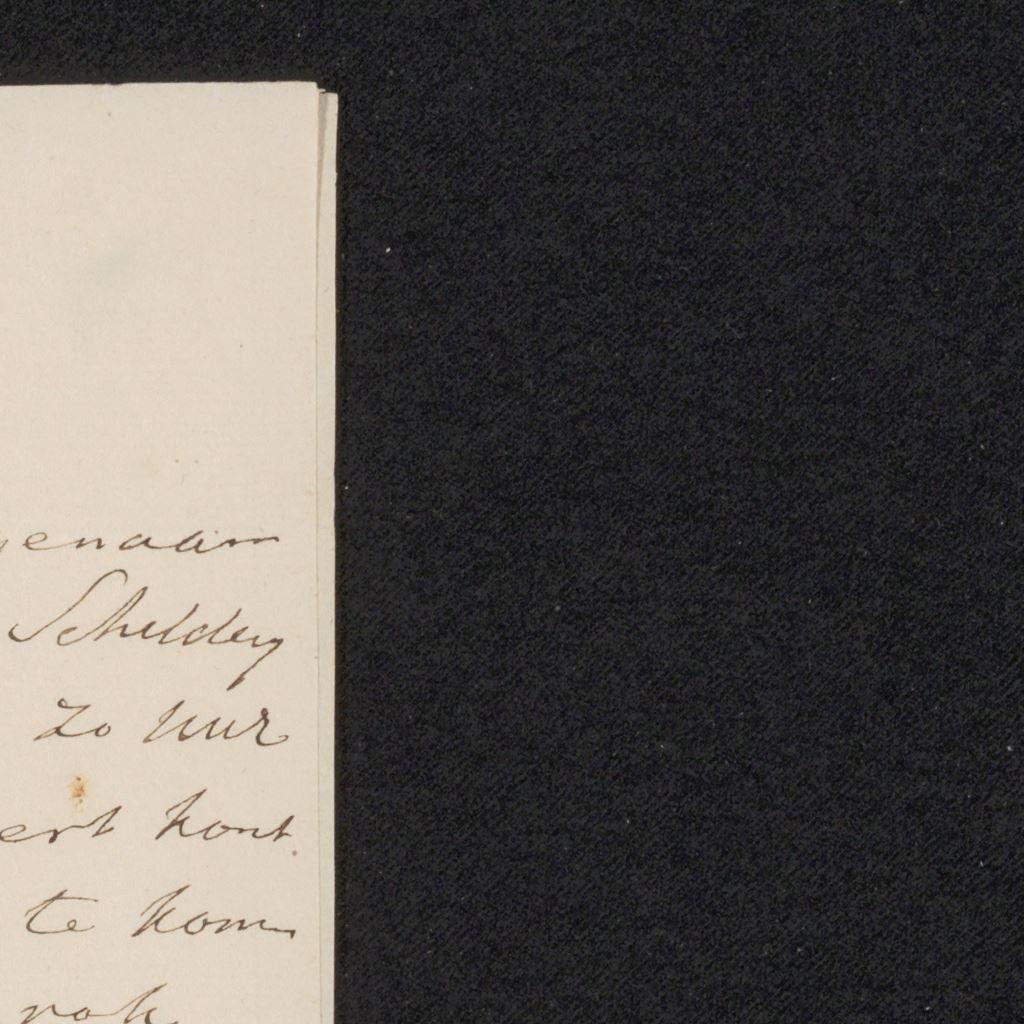 genaam
Schildery
zo uur
ert kont
te kom
rok